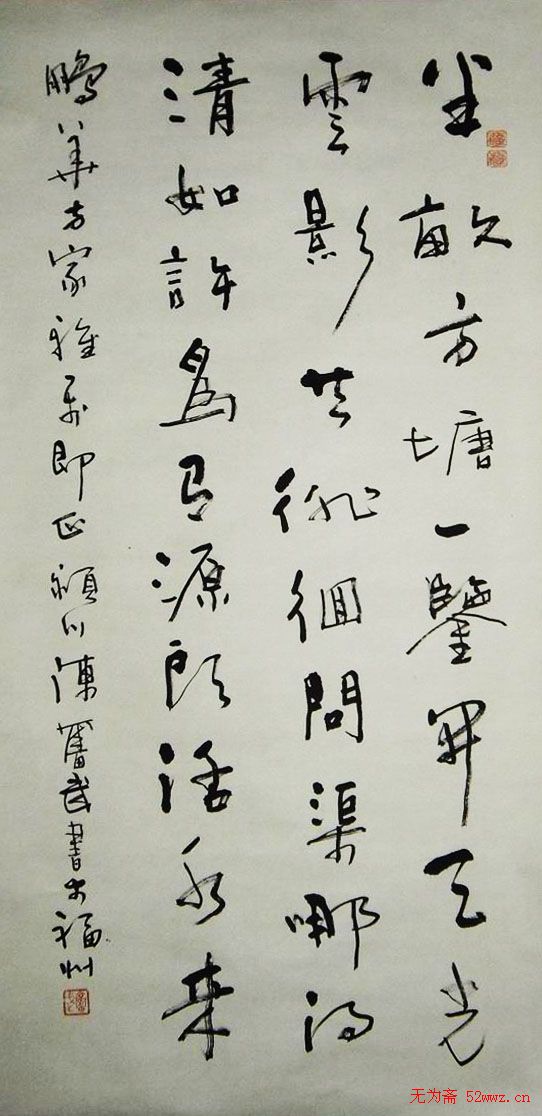 半畝方塘一鑒開天光
雲影共徘徊問渠哪得
清如許為有源頭活水來
鵬華方家雅屬即正潁川陳奮武書於福州
无为斋 52wwz.cn